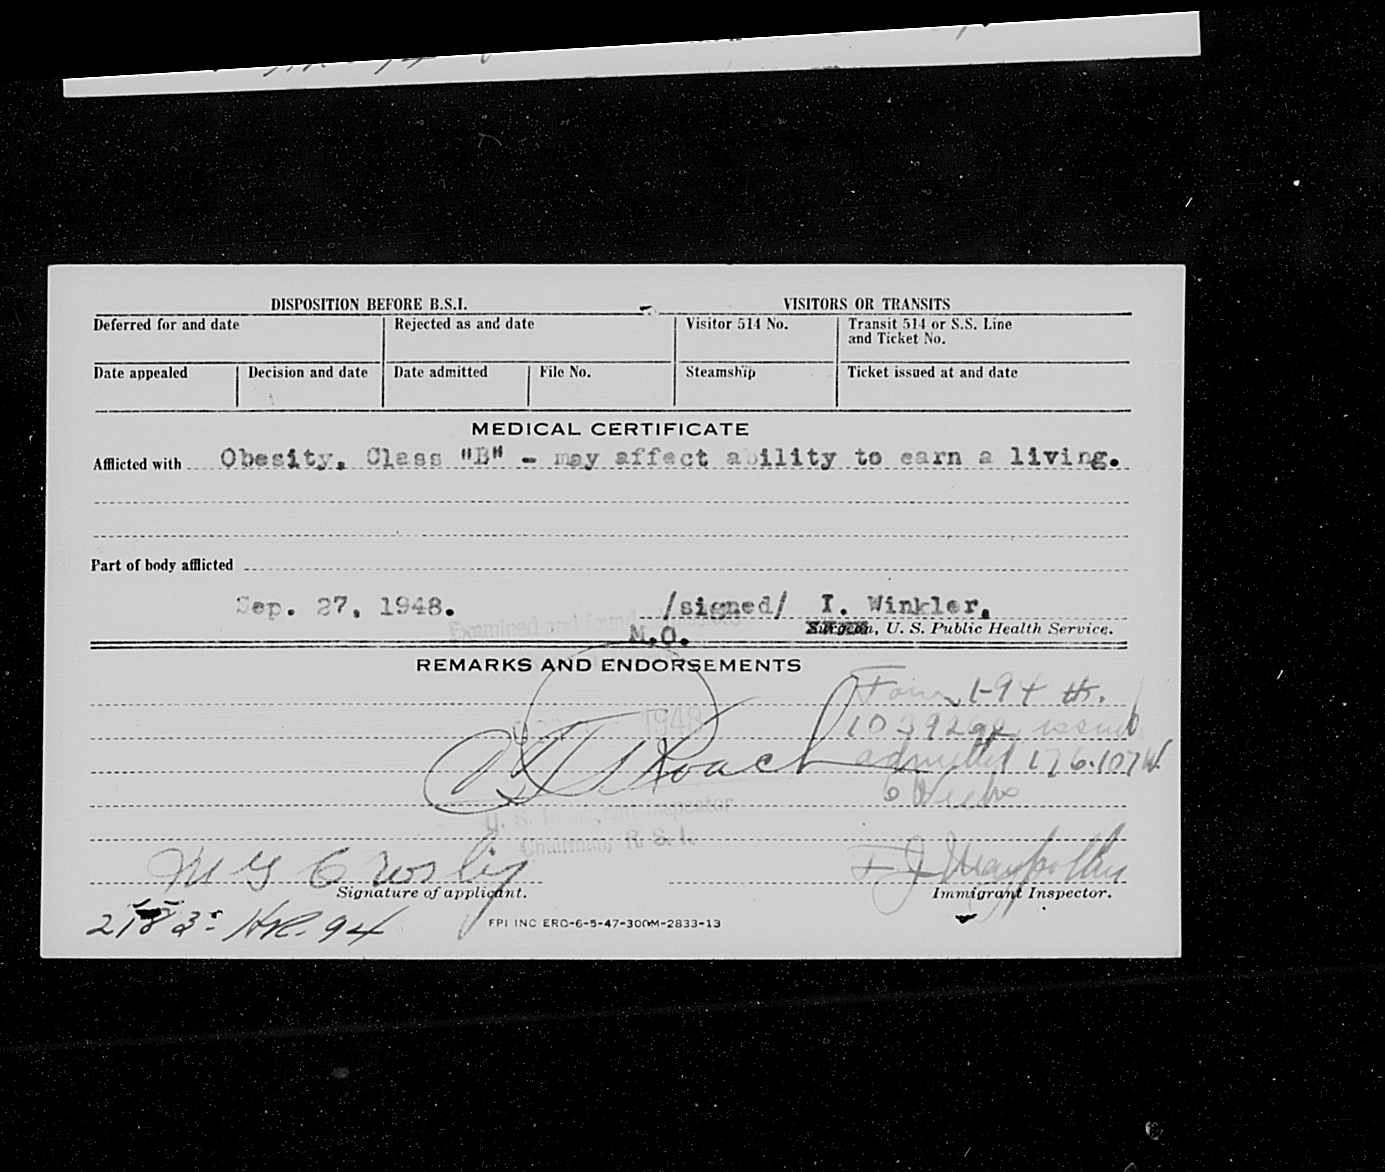 DISPOSITION BEFORE B.S.I.
VISITORS OR TRANSITS
Deferred for and date
Rejected as and date
Visitor 514 No.
Transit 514 or S.S. Line
and Ticket No.
Date appealed
Decision and date
Date admitted
File No.
Steamship
Ticket issued at and date
MEDICAL CERTIFICATE
Afflicted with Obesity, Class "B" - may affect ability to earn a living.
Part of body afflicted
Sep. 27, 1948. /signed/ I. Winkler,
M.O. Surgeon, U. S. Public Health Service.
REMARKS AND ENDORSEMENTS
1948
Roach
issued
admitted 176.107
6 Weeks
U. S. Immigrant Inspector
Chairman, B. S. I.
M G Crosby
Signature of applicant.
Immigrant Inspector.
FPI INC ERO-6-5-47-300M-2833-13